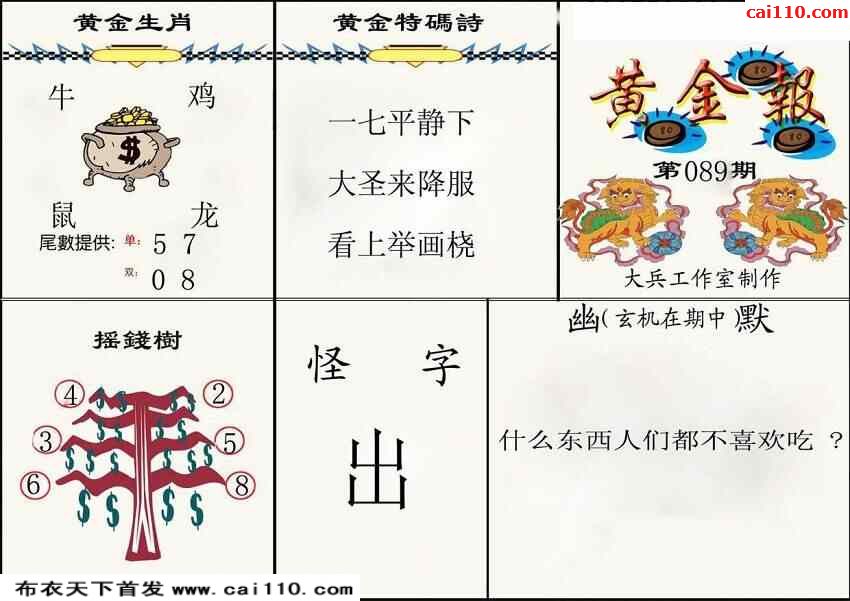 cai110.com
黄金生肖
牛 鸡
$
鼠 龙
尾數提供: 单: 5 7
双: 0 8
黄金特碼詩
一七平静下
大圣来降服
看上举画桡
黄金報
80
80
80
第089期
大兵工作室制作
摇錢樹
④ ②
$ $ $ $
$ $ $ $
③ ⑤
$ $ $ $
⑥ ⑧
$ $ $ $
怪 字
出
幽(玄机在期中)默
什么东西人们都不喜欢吃 ?
布衣天下首发 www.cai110.com